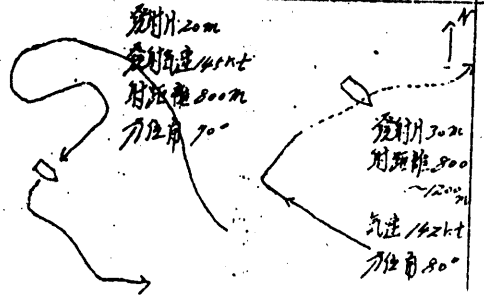 發射片 20m
發射気速 145kt
射距離 800m
方位角 90°
N
發射片 30m
射距離 800
~1200m
気速 142kt
方位角 80°